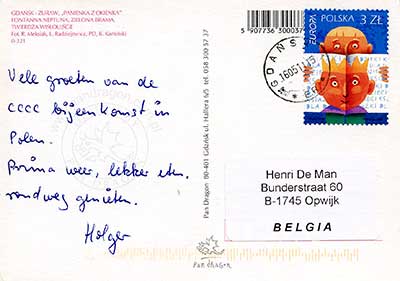 GDAŃSK - ŻURAW, „PANIENKA Z OKIENKA”
FONTANNA NEPTUNA, ZIELONA BRAMA,
TWIERDZA WISŁOUJŚCIE
Fot. R. Aleksiak, L. Radziejewicz, PD, K. Kamiński
G-321
Vele groeten van de
cccc bijeenkomst in
Polen.
Prima weer, lekker eten.
rondweg genieten.
Holger
Pan Dragon 80-401 Gdańsk ul. Hallera 6/5 tel. 058 300 57 37
5 907736 300037
EUROPA POLSKA 3 ZŁ
GDAŃSK
Henri De Man
Bunderstraat 60
B-1745 Opwijk
BELGIA
PAN DRAGON